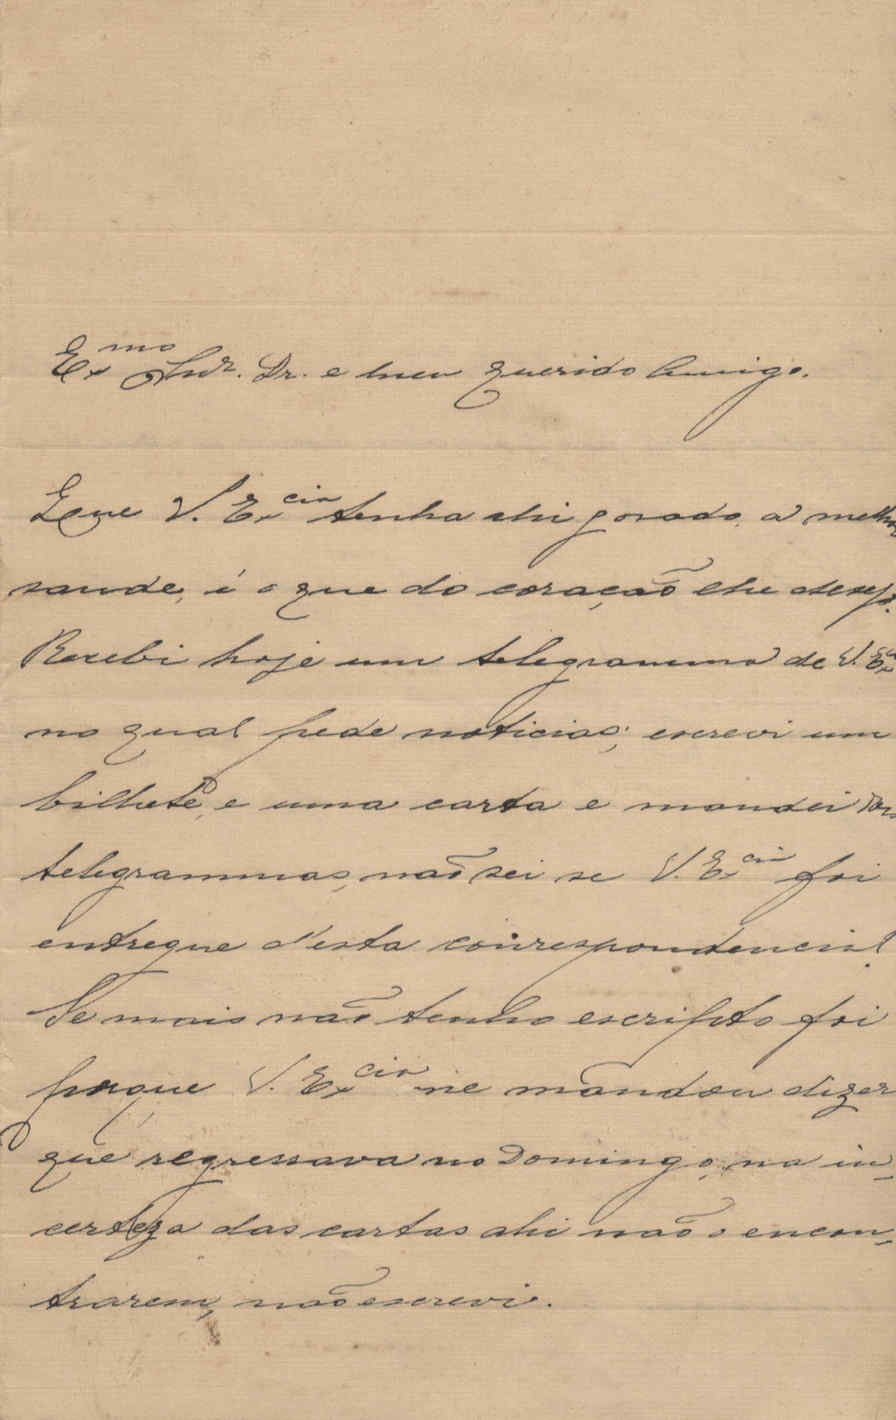 Exmo Snr. Dr. e meu querido Amigo.
Que V. Excia tenha ahi gosado a melhor
saude, é o que do coração lhe desejo.
Recebi hoje um telegramma de V. Exa
no qual pede noticias; escrevi um
bilhete, e uma carta e mandei dois
telegrammas, não sei se V. Excia foi
entregue d'esta correspondencia!
Se mais não tenho escripto foi
porque V. Excia me mandou dizer
que regressava no Domingo, na in-
certeza das cartas ahi não o encon-
trarem, não escrevi.